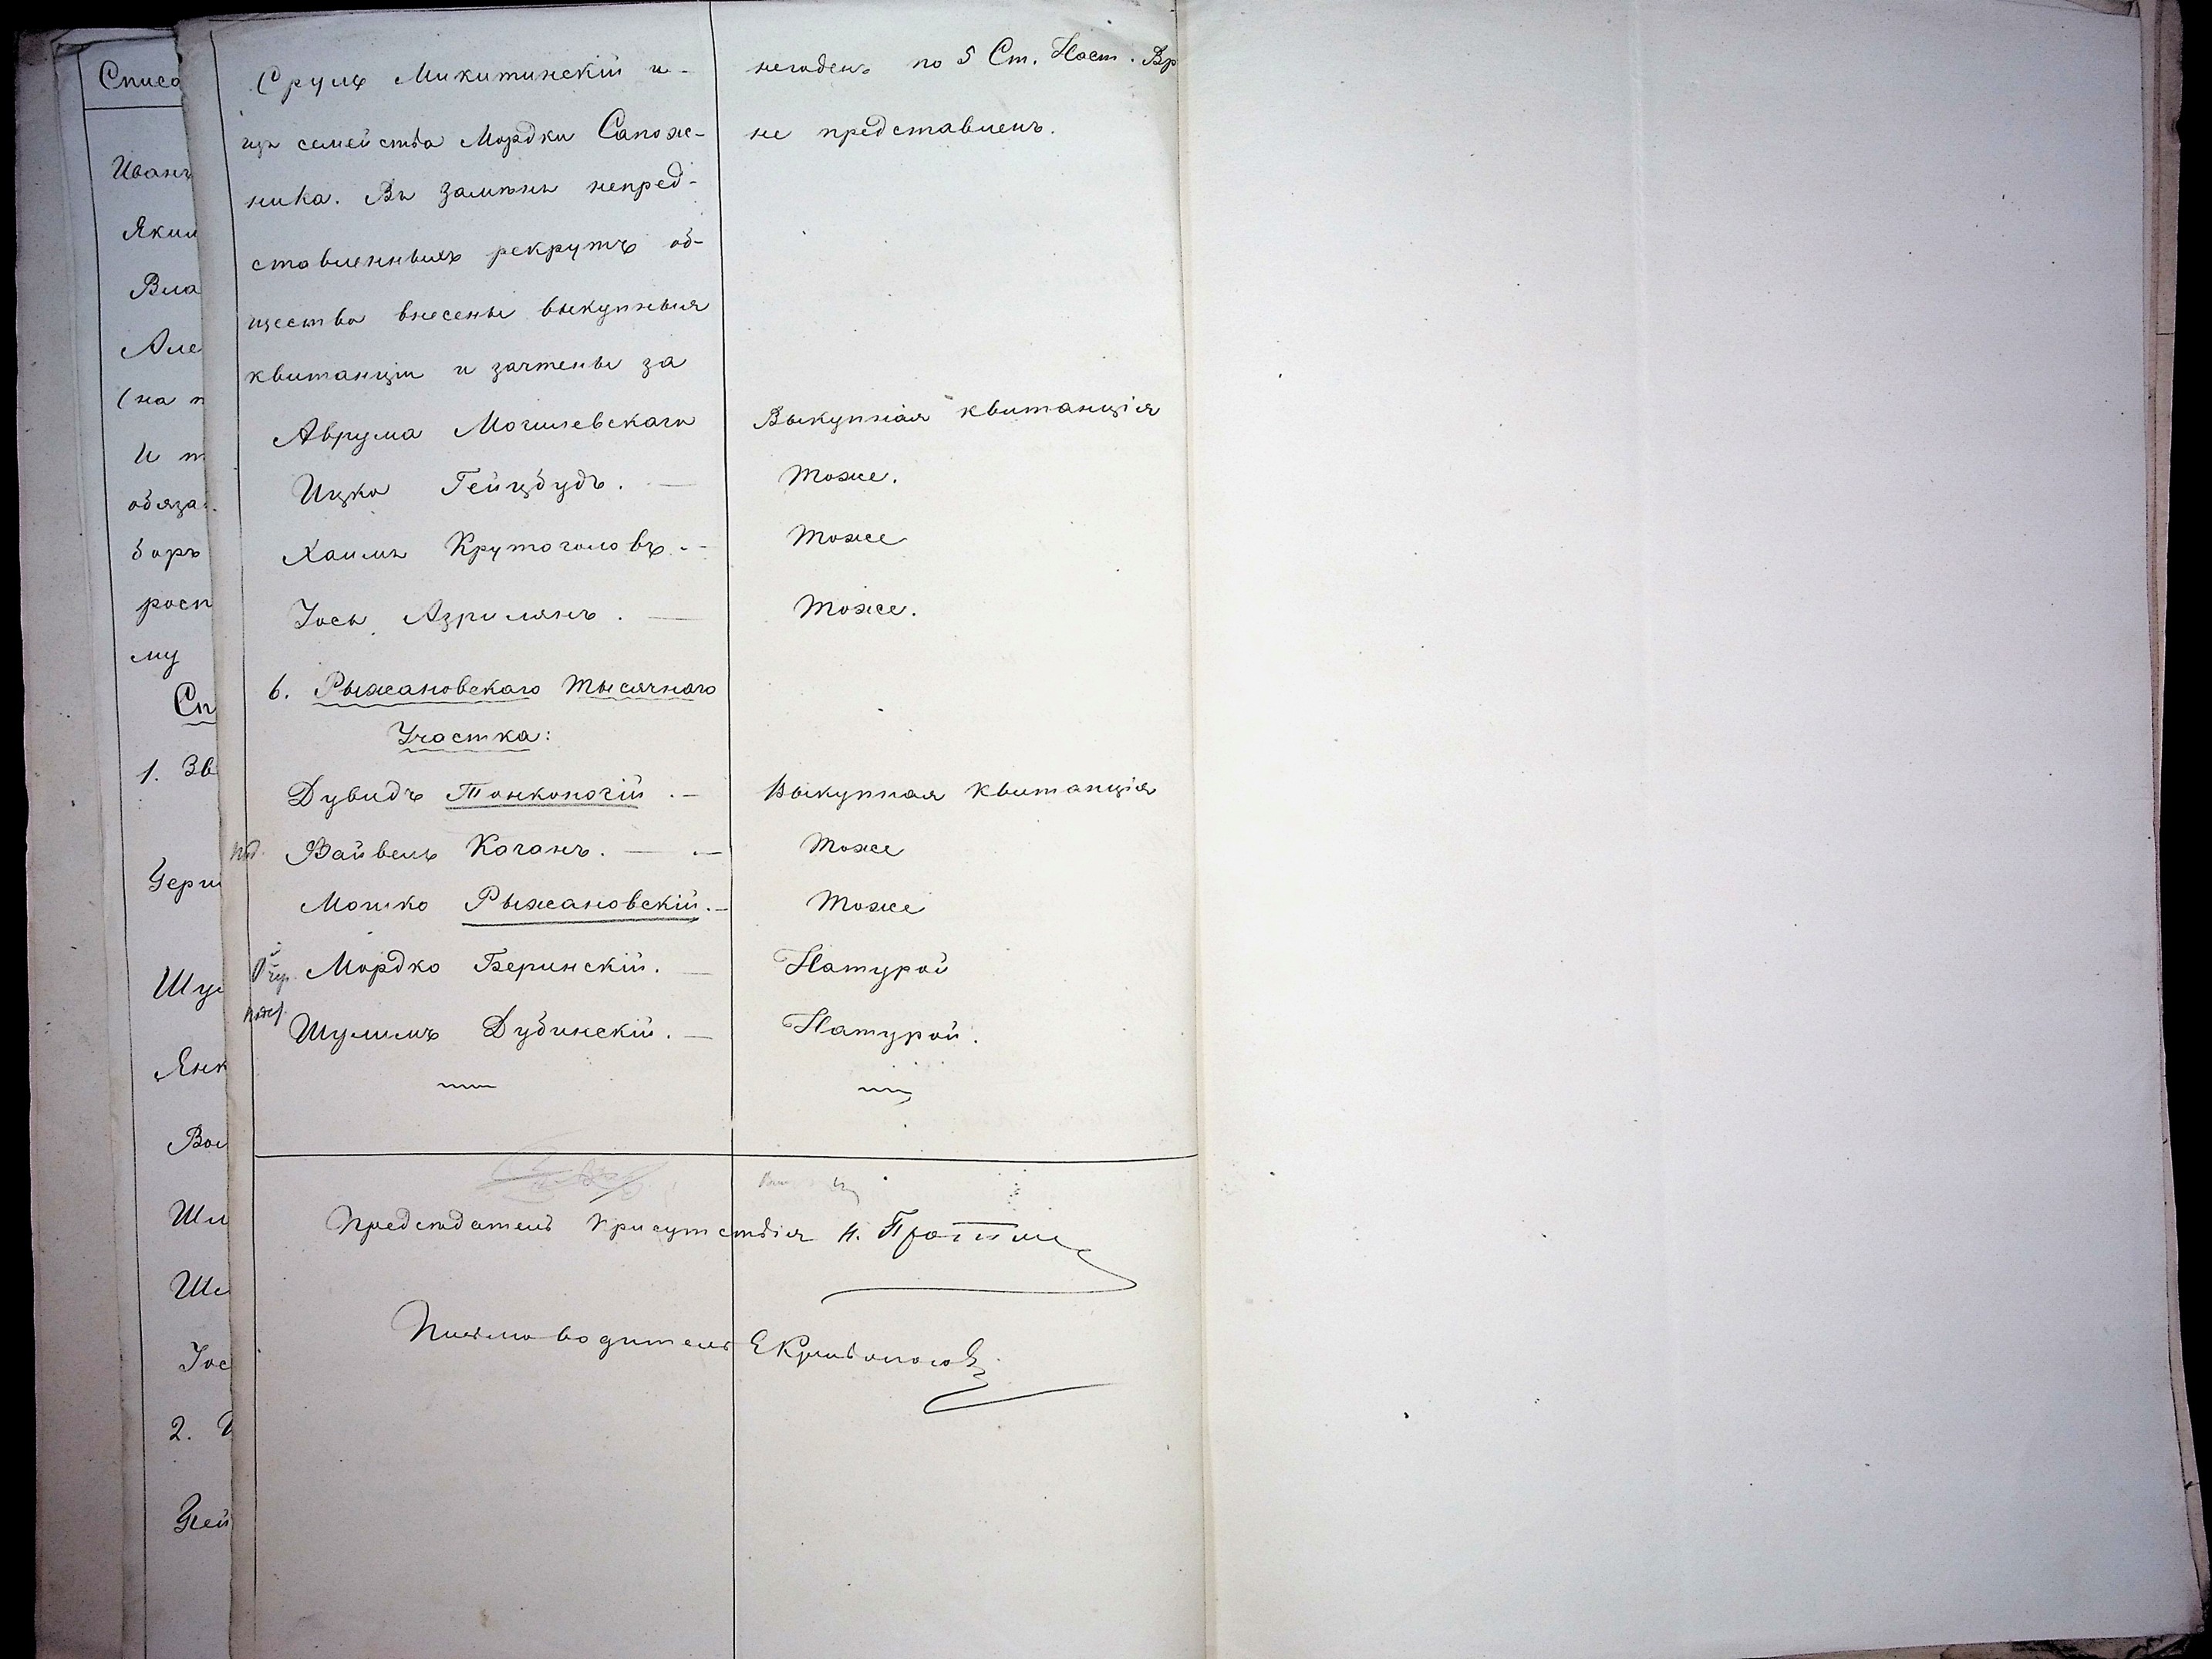 Списо
Иванъ
Яким
Вла
Але
(на п
И т
обяза
боръ
росп
му
Сп
1. Зв
Герш
Шу
Янк
Вол
Шл
Ше
Іос
2.
Лей
Сруль Микитинскій и - негоденъ по 5 Ст. Наст. Вр
изъ семейства Мордки Сапож- не представленъ.
ника. Въ замѣнъ непред-
ставленныхъ рекрутъ об-
щества внесены выкупныя
квитанціи и зачтены за
Аврума Могилевскаго Выкупная квитанція
Ицко Гейцбудъ. — Тоже.
Хаимъ Крутоголовъ. - Тоже
Іось Азрилянъ. — Тоже.
6. Рыжановскаго Тысячнаго
Участка:
Дувидъ Тонконогій. - Выкупная квитанція
Вайвель Коганъ. — Тоже
Мошко Рыжановскій. - Тоже
Мордко Беринскій. — Натурой
Шулимъ Дубинскій. — Натурой.
Предсѣдатель Присутствія
Письмоводитель